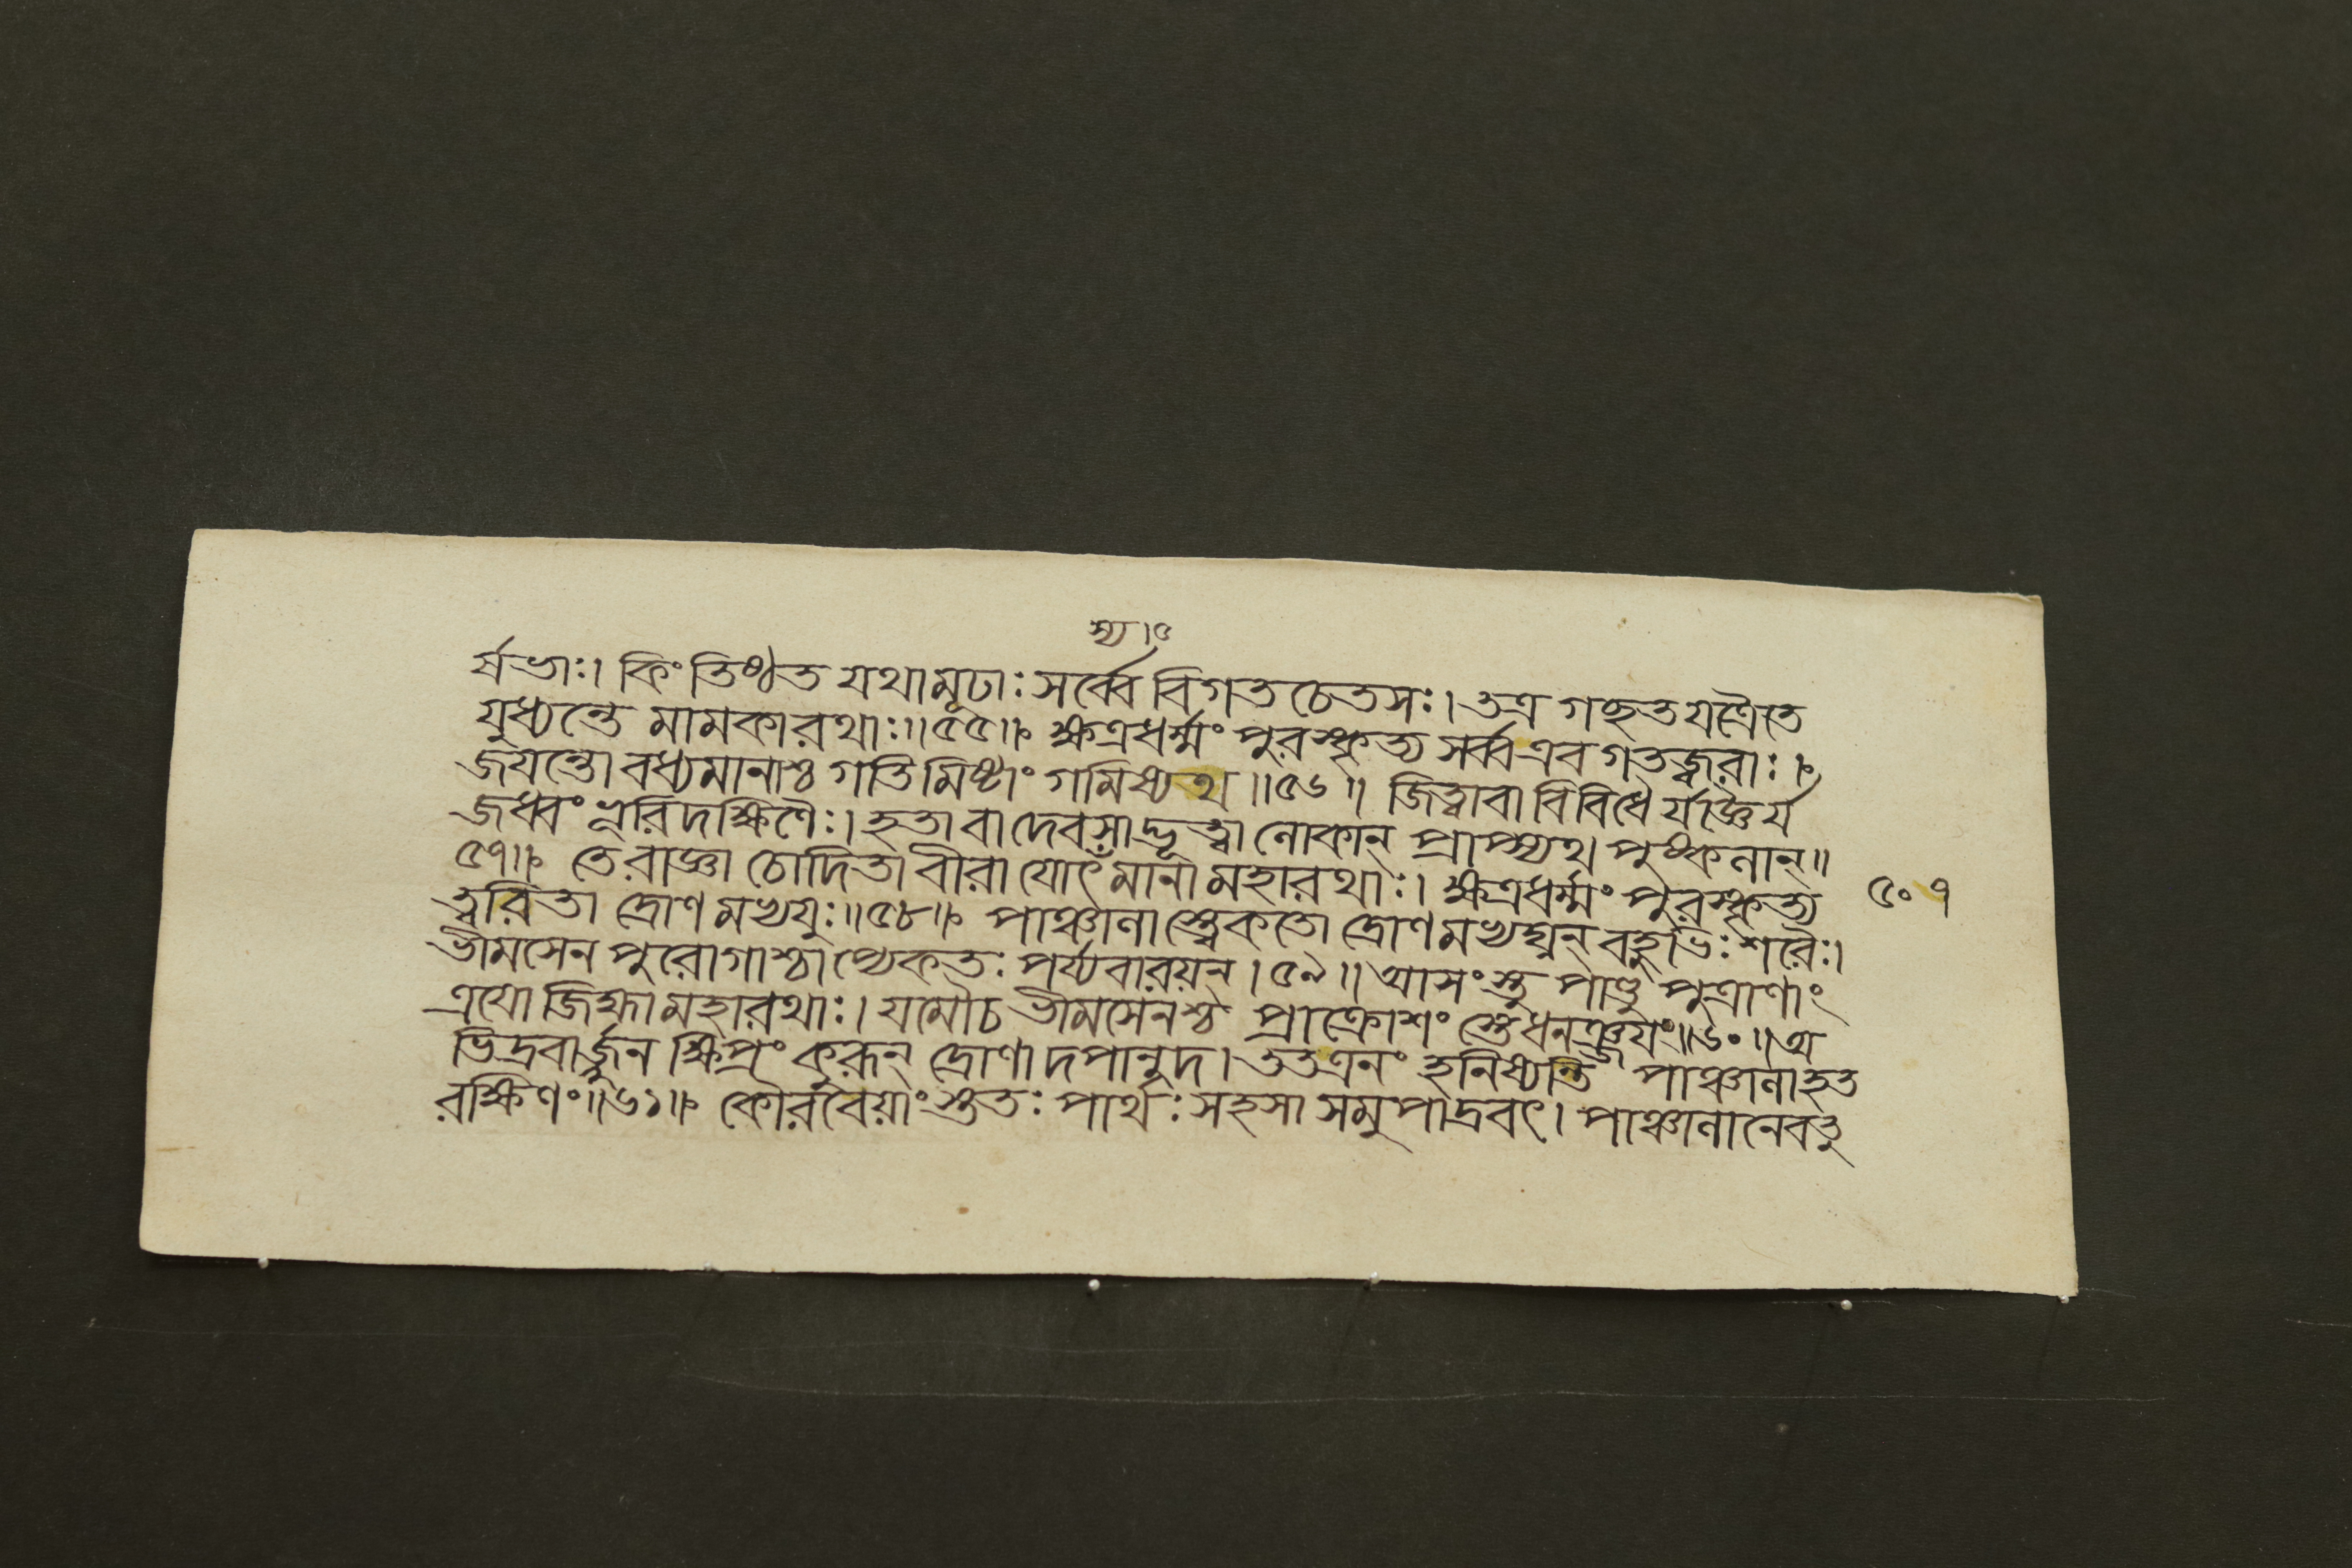 স্য।৫
র্ষভাঃ। কিং তিষ্ঠত যথামূঢাঃ সর্ব্বে বিগতচেতসঃ। তত্র গচ্ছত যত্রৈতে
যুধ্যন্তে মামকারথাঃ॥৫৫॥ ক্ষত্রধর্ম্মং পুরস্কৃত্য সর্ব্বএব গতজ্বরাঃ।
জয়ন্তো বধ্যমানাশ্চ গতিমিষ্টাং গমিষ্যথ॥৫৬॥ জিত্বাবা বিবিধৈর্যজ্ঞৈর্য
জধ্বং ভূরিদক্ষিণৈঃ। হতাবা দেবসাদ্ভূত্বা লোকান্ প্রাপ্স্যথ পুষ্কলান্॥
৫৭॥ তে রাজ্ঞা চোদিতা বীরা যোৎমানা মহারথাঃ। ক্ষত্রধর্ম্মং পুরস্কৃত্য
৫০৭
ত্বরিতা দ্রোণমভ্যযুঃ॥৫৮॥ পাঞ্চালাস্ত্বেকতো দ্রোণমভ্যঘ্নন্ বহুভিঃ শরৈঃ।
ভীমসেনপুরোগাশ্চাপ্যেকতঃ পর্য্যবারয়ন্।৫৯॥ আসংস্তু পাণ্ডুপুত্রাণাং
ত্রযো জিহ্মা মহারথাঃ। যমৌচ ভীমসেনশ্চ প্রাক্রোশংস্তেধনঞ্জয়ং॥৬০॥ অ
ভিদ্রবার্জ্জুন ক্ষিপ্রং কুরূন্ দ্রোণাদপানুদ। ততএনং হনিষ্যন্তি পাঞ্চালাহত
রক্ষিণং॥৬১॥ কৌরবেয়াংস্ততঃ পার্থঃ সহসা সমুপাদ্রবৎ। পাঞ্চালানেবতু